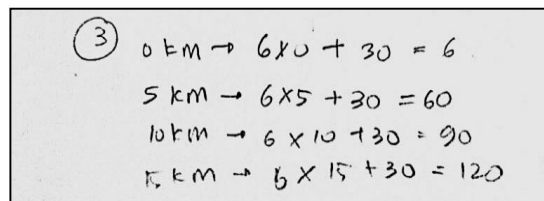 ③ 0 km → 6x0 + 30 = 6
5 km → 6x5 + 30 = 60
10 km → 6 x 10 + 30 = 90
15 km → 6 x 15 + 30 = 120